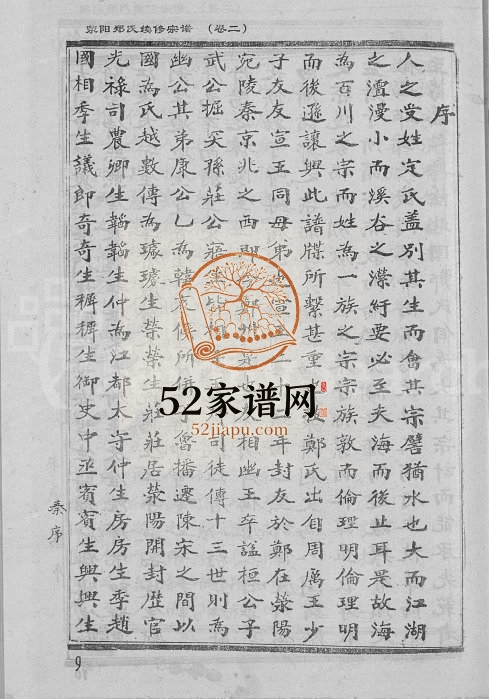 荥阳郑氏续修宗谱 （卷二）
序
人之受姓定氏蓋別其生而會其宗譬猶水也大而江湖
之澶漫小而溪谷之濚紆要必至夫海而後止耳是故海
為百川之宗而姓為一族之宗宗族敦而倫理明倫理明
而後遜讓興此譜牒所繫甚重 鄭氏出自周厲王少
子友友宣王同母弟 宣王二十二年封友於鄭在滎陽
宛陵秦京兆之西即 相幽王卒謚桓公子
武公掘突孫莊公寤生皆 司徒傳十三世則為
幽公其弟康公乙為韓 侯所併 魯播遷陳宋之間以
國為氏越數傳為璩璩生榮榮生莊莊居滎陽開封歷官
光祿司農卿生韜韜生仲為江都太守仲生房房生季趙
國相季生議郎奇奇生穉穉生御史中丞賓賓生興興生
秦序
9
52家谱网
52jiapu.com